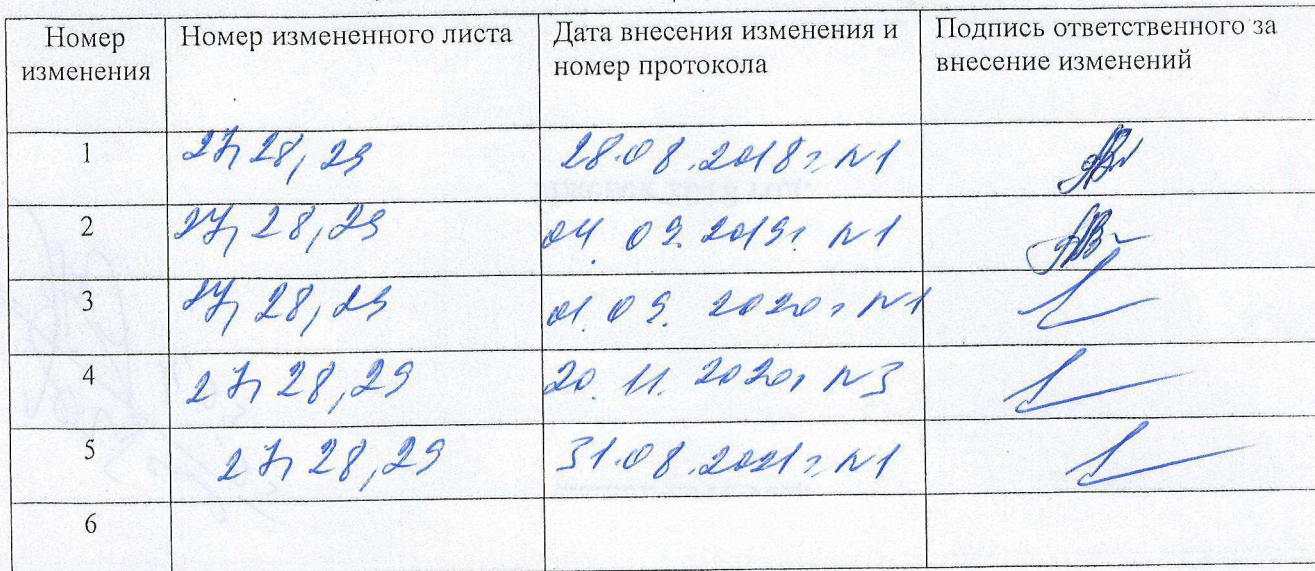 Номер изменения | Номер измененного листа | Дата внесения изменения и номер протокола | Подпись ответственного за внесение изменений
1 | 27, 28, 29 | 28.08.2018г. №1
2 | 27, 28, 29 | 04.09.2019г №1
3 | 27, 28, 29 | 01.09.2020г №1
4 | 27, 28, 29 | 20.11.2020г №3
5 | 27, 28, 29 | 31.08.2021г. №1
6